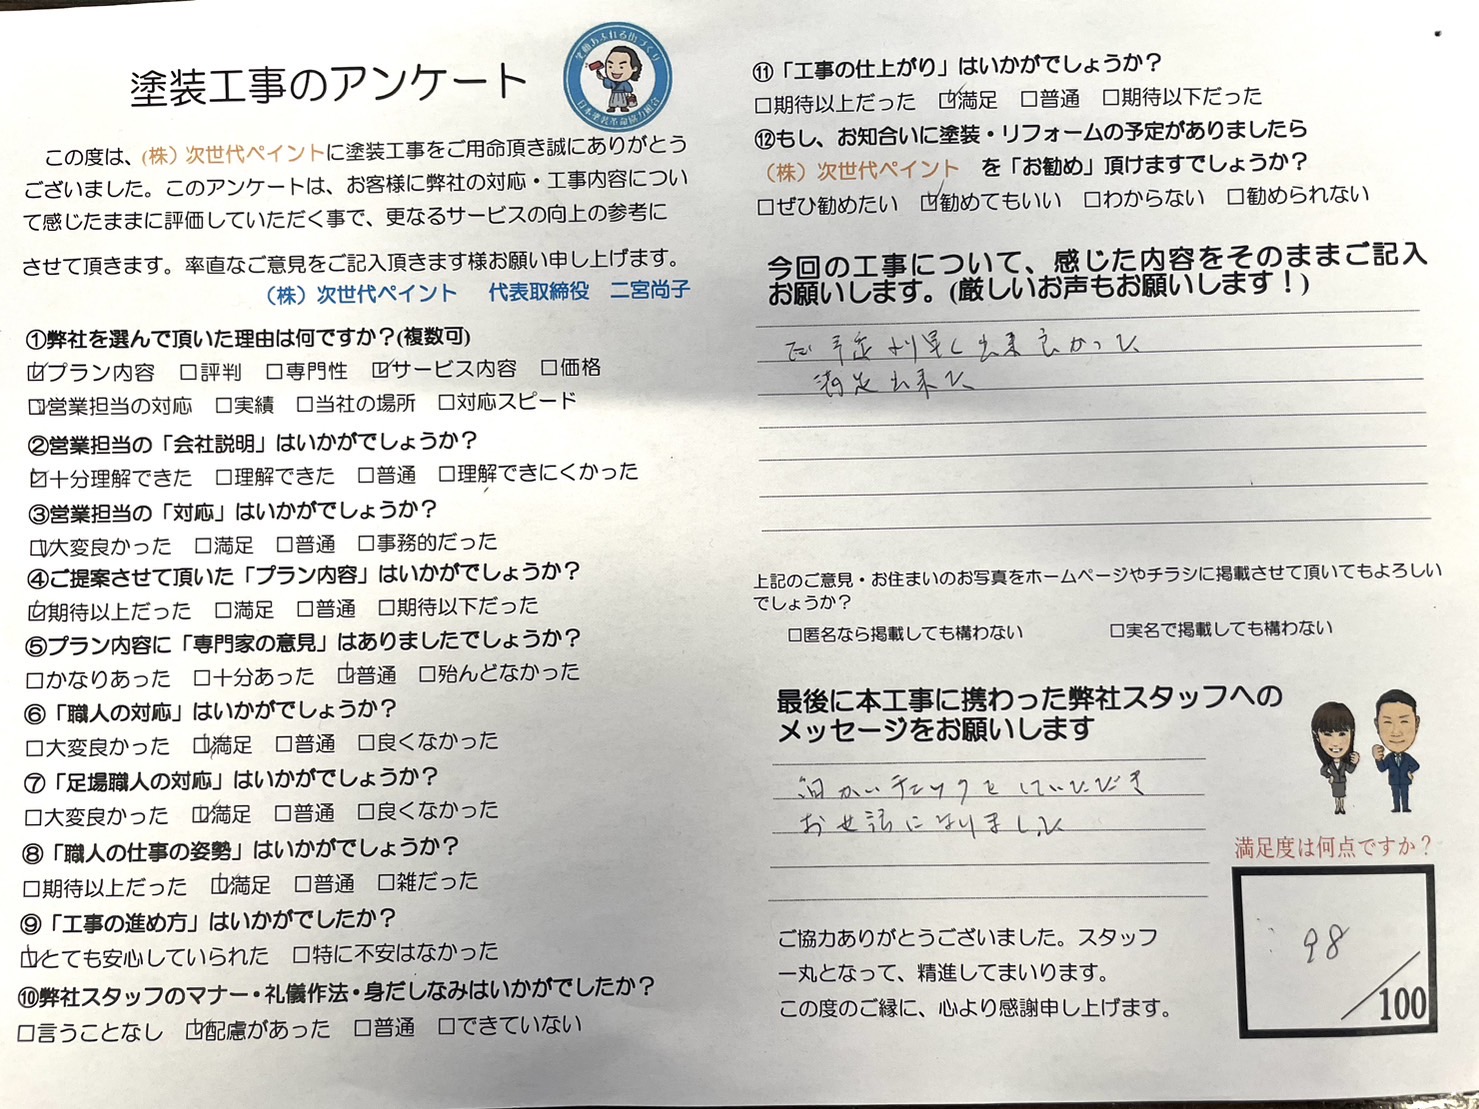 塗装工事のアンケート
笑顔あふれる街づくり
日本塗装革命協力組合
この度は、(株）次世代ペイントに塗装工事をご用命頂き誠にありがとう
ございました。このアンケートは、お客様に弊社の対応・工事内容につい
て感じたままに評価していただく事で、更なるサービスの向上の参考に
させて頂きます。率直なご意見をご記入頂きます様お願い申し上げます。
（株）次世代ペイント　代表取締役　二宮尚子
①弊社を選んで頂いた理由は何ですか？(複数可)
☑プラン内容　□評判　□専門性　☑サービス内容　□価格
☑営業担当の対応　□実績　□当社の場所　□対応スピード
②営業担当の「会社説明」はいかがでしょうか？
☑十分理解できた　□理解できた　□普通　□理解できにくかった
③営業担当の「対応」はいかがでしょうか？
☑大変良かった　□満足　□普通　□事務的だった
④ご提案させて頂いた「プラン内容」はいかがでしょうか？
☑期待以上だった　□満足　□普通　□期待以下だった
⑤プラン内容に「専門家の意見」はありましたでしょうか？
□かなりあった　□十分あった　☑普通　□殆んどなかった
⑥「職人の対応」はいかがでしょうか？
□大変良かった　☑満足　□普通　□良くなかった
⑦「足場職人の対応」はいかがでしょうか？
□大変良かった　☑満足　□普通　□良くなかった
⑧「職人の仕事の姿勢」はいかがでしょうか？
□期待以上だった　☑満足　□普通　□雑だった
⑨「工事の進め方」はいかがでしたか？
☑とても安心していられた　□特に不安はなかった
⑩弊社スタッフのマナー・礼儀作法・身だしなみはいかがでしたか？
□言うことなし　☑配慮があった　□普通　□できていない
⑪「工事の仕上がり」はいかがでしょうか？
□期待以上だった　☑満足　□普通　□期待以下だった
⑫もし、お知合いに塗装・リフォームの予定がありましたら
（株）次世代ペイント　を「お勧め」頂けますでしょうか？
□ぜひ勧めたい　☑勧めてもいい　□わからない　□勧められない
今回の工事について、感じた内容をそのままご記入
お願いします。(厳しいお声もお願いします！)
予定より早く出来良かった
満足出来た
上記のご意見・お住まいのお写真をホームページやチラシに掲載させて頂いてもよろしい
でしょうか？
□匿名なら掲載しても構わない　□実名で掲載しても構わない
最後に本工事に携わった弊社スタッフへの
メッセージをお願いします
細かいチェックをしていただき
お世話になりました
満足度は何点ですか？
98
100
ご協力ありがとうございました。スタッフ
一丸となって、精進してまいります。
この度のご縁に、心より感謝申し上げます。